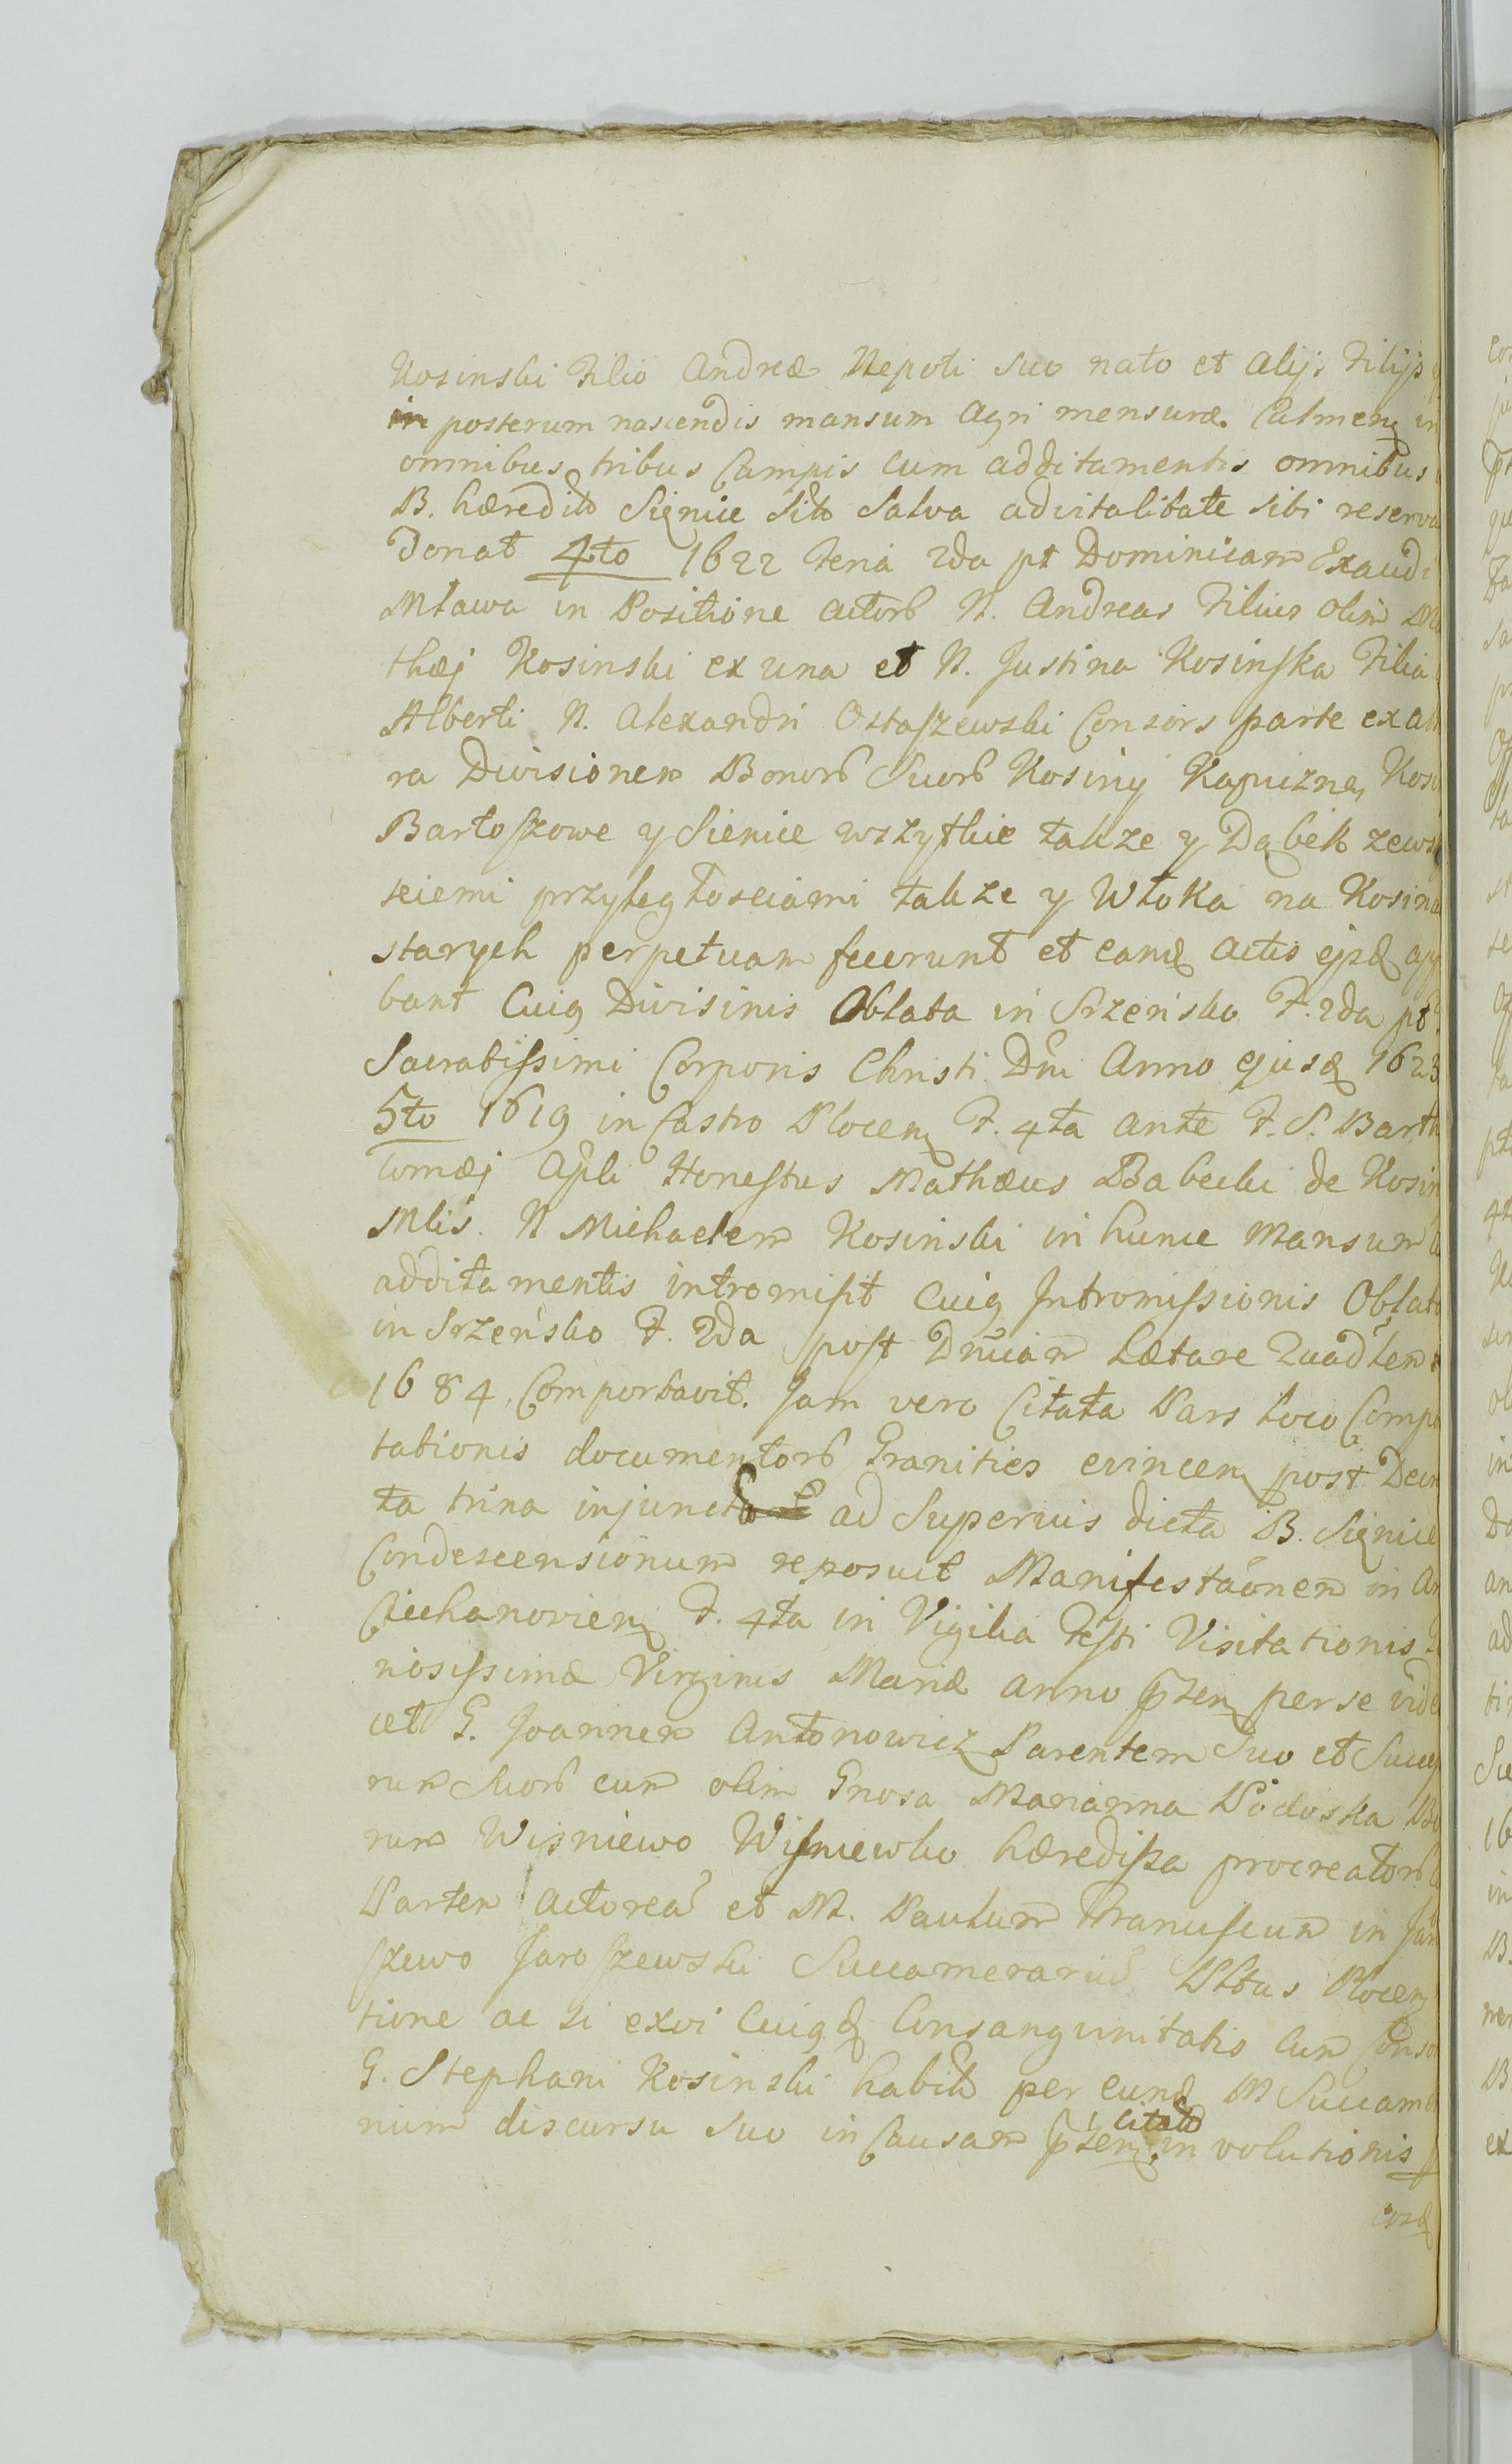 Kosinski Filio Andreæ Nepoti suo nato et alijs Filijs
in posterum nascendis mansum Agri mensuræ Culmen in
omnibus tribus Campis cum additamentis omnibus
B. hæredit Sienice sit Salva advitalitate sibi reserva
Donat 4to 1622 Feria 2da pt Dominicam Exaudi
Mława in Positione actorb N. Andreas Filius olim Ma
thæj Kosinski ex una et N. Justina Kosinska Filia
Alberti N. Alexandri Ostaszewski Consors parte ex alt
ra Divisionem Bonorb Suorb Kosiny Kapiczne, Kosi
Bartoszowe y Sienice wszytkie takze y Dąbek zews
sciemi przyległosciami takze y Włoka na Kosina
starych perpetuam fecerunt et eamq actis ejsd app
bant Cuig Divisinis Oblata in Srzeńsko F. 2da pt
Sacratissimi Corporis Christi Dni Anno ejusd 1623
5to 1619 in Castro Plocen F. 4ta ante F. S. Barth
lomæj Apli Honestus Mathæus Babecki de Kosin
Mlis. N Michaelem Kosinski in hunc Mansum
additamentis intromisit Cuig Intromissionis Oblat
in Srzeńsko F. 2da post Dnicam Lætare Quadlem
1684, Comportavit. Jam vero Citata Pars loco Compo
tationis documentorb Granities evincen post Decr
ta trina injuncta ad Supervis dicta B. Sienice
Condescensionum reposuit Manifestaonem in A
Ciechanovien F. 4ta in Vigilia Festi Visitationis
riosissimæ Virginis Mariæ anno pzen per se vide
cet G. Joannem Antonowicz Parentem Suo et Succ
rum Suorb cum olim Gnosa Marianna Podoska Bo
rum Wisniewo Wisniewko hæredissa procreatorb
Partem actorea et M. Paulum Franciscum in Jar
szewo Jaroszewski Succamerariu Pltus Plocen
tione ac si exvi Cuigq Consangvinitatis Cum Conso
G. Stephani Kosinski habit per eund M Succam
rium discursu Suo in Causam pzen citato in volutionis
eosd